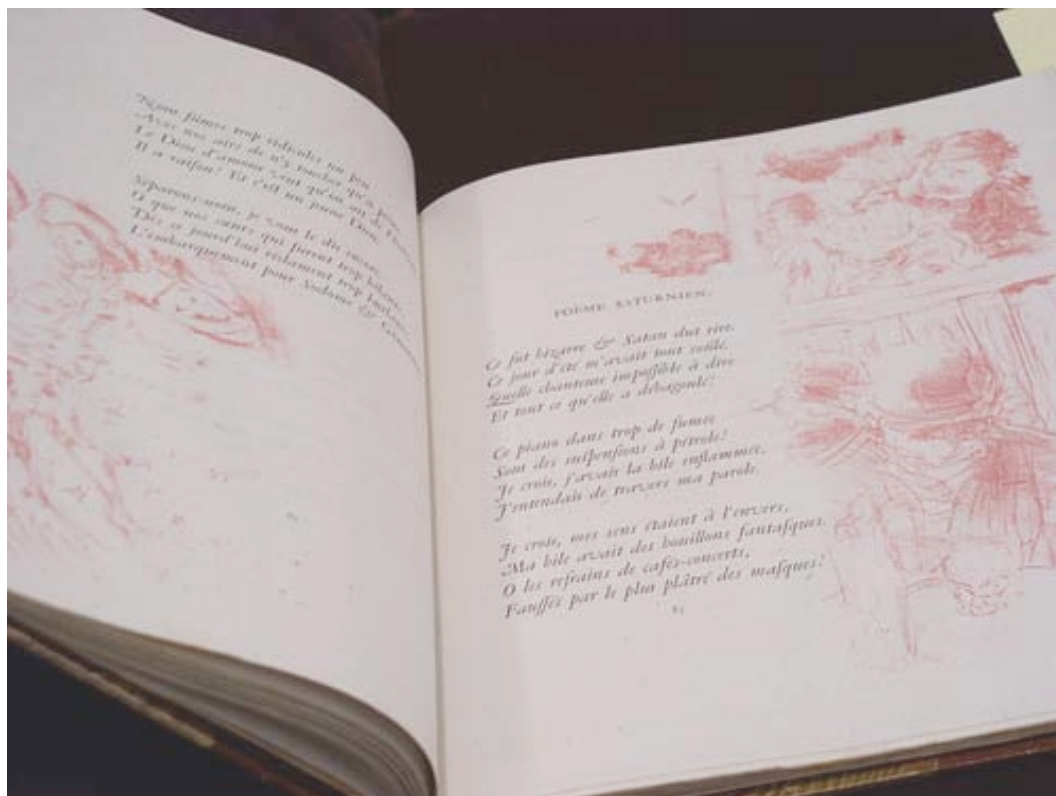 Nous fûmes trop ridicules un peu
Avec nos airs de n'y toucher qu'à peu,
Le Dieu d'amour veut qu'on ait de
Il a raison! Et c'est un jeune Dieu.
Séparons-nous, je vous le dis encore,
O que nos cœurs qui furent trop bêlants,
Dès ce jourd'hui réclament trop hurlants,
L'embarquement pour Sodome & Gomorrhe
POÈME SATURNIEN.
Ce fut bizarre & Satan dut rire.
Ce jour d'été m'avait tout soûlé.
Quelle chanteuse impoſſible à dire
Et tout ce qu'elle a débagoulé!
Ce piano dans trop de fumée
Sous des suſpenſions à pétrole!
Je crois, j'avais la bile enflammée,
J'entendais de travers ma parole.
Je crois, mes sens étaient à l'envers,
Ma bile avait des bouillons fantaſques.
O les refrains de cafés-concerts,
Fauſſés par le plus plâtré des maſques!